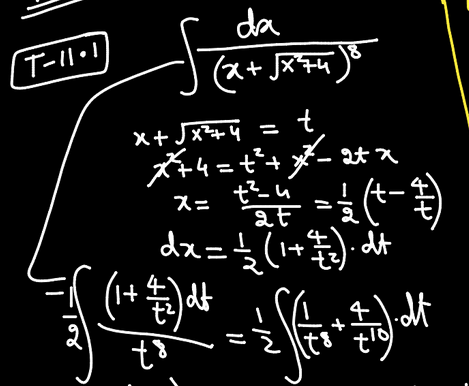 T-11.1
∫ dx / (x + √(x²+4))⁸
x + √(x²+4) = t
x² + 4 = t² + x² - 2tx
x = (t²-4)/(2t) = 1/2 (t - 4/t)
dx = 1/2 (1 + 4/t²) · dt
= 1/2 ∫ (1 + 4/t²) dt / t⁸ = 1/2 ∫ (1/t⁸ + 4/t¹⁰) · dt